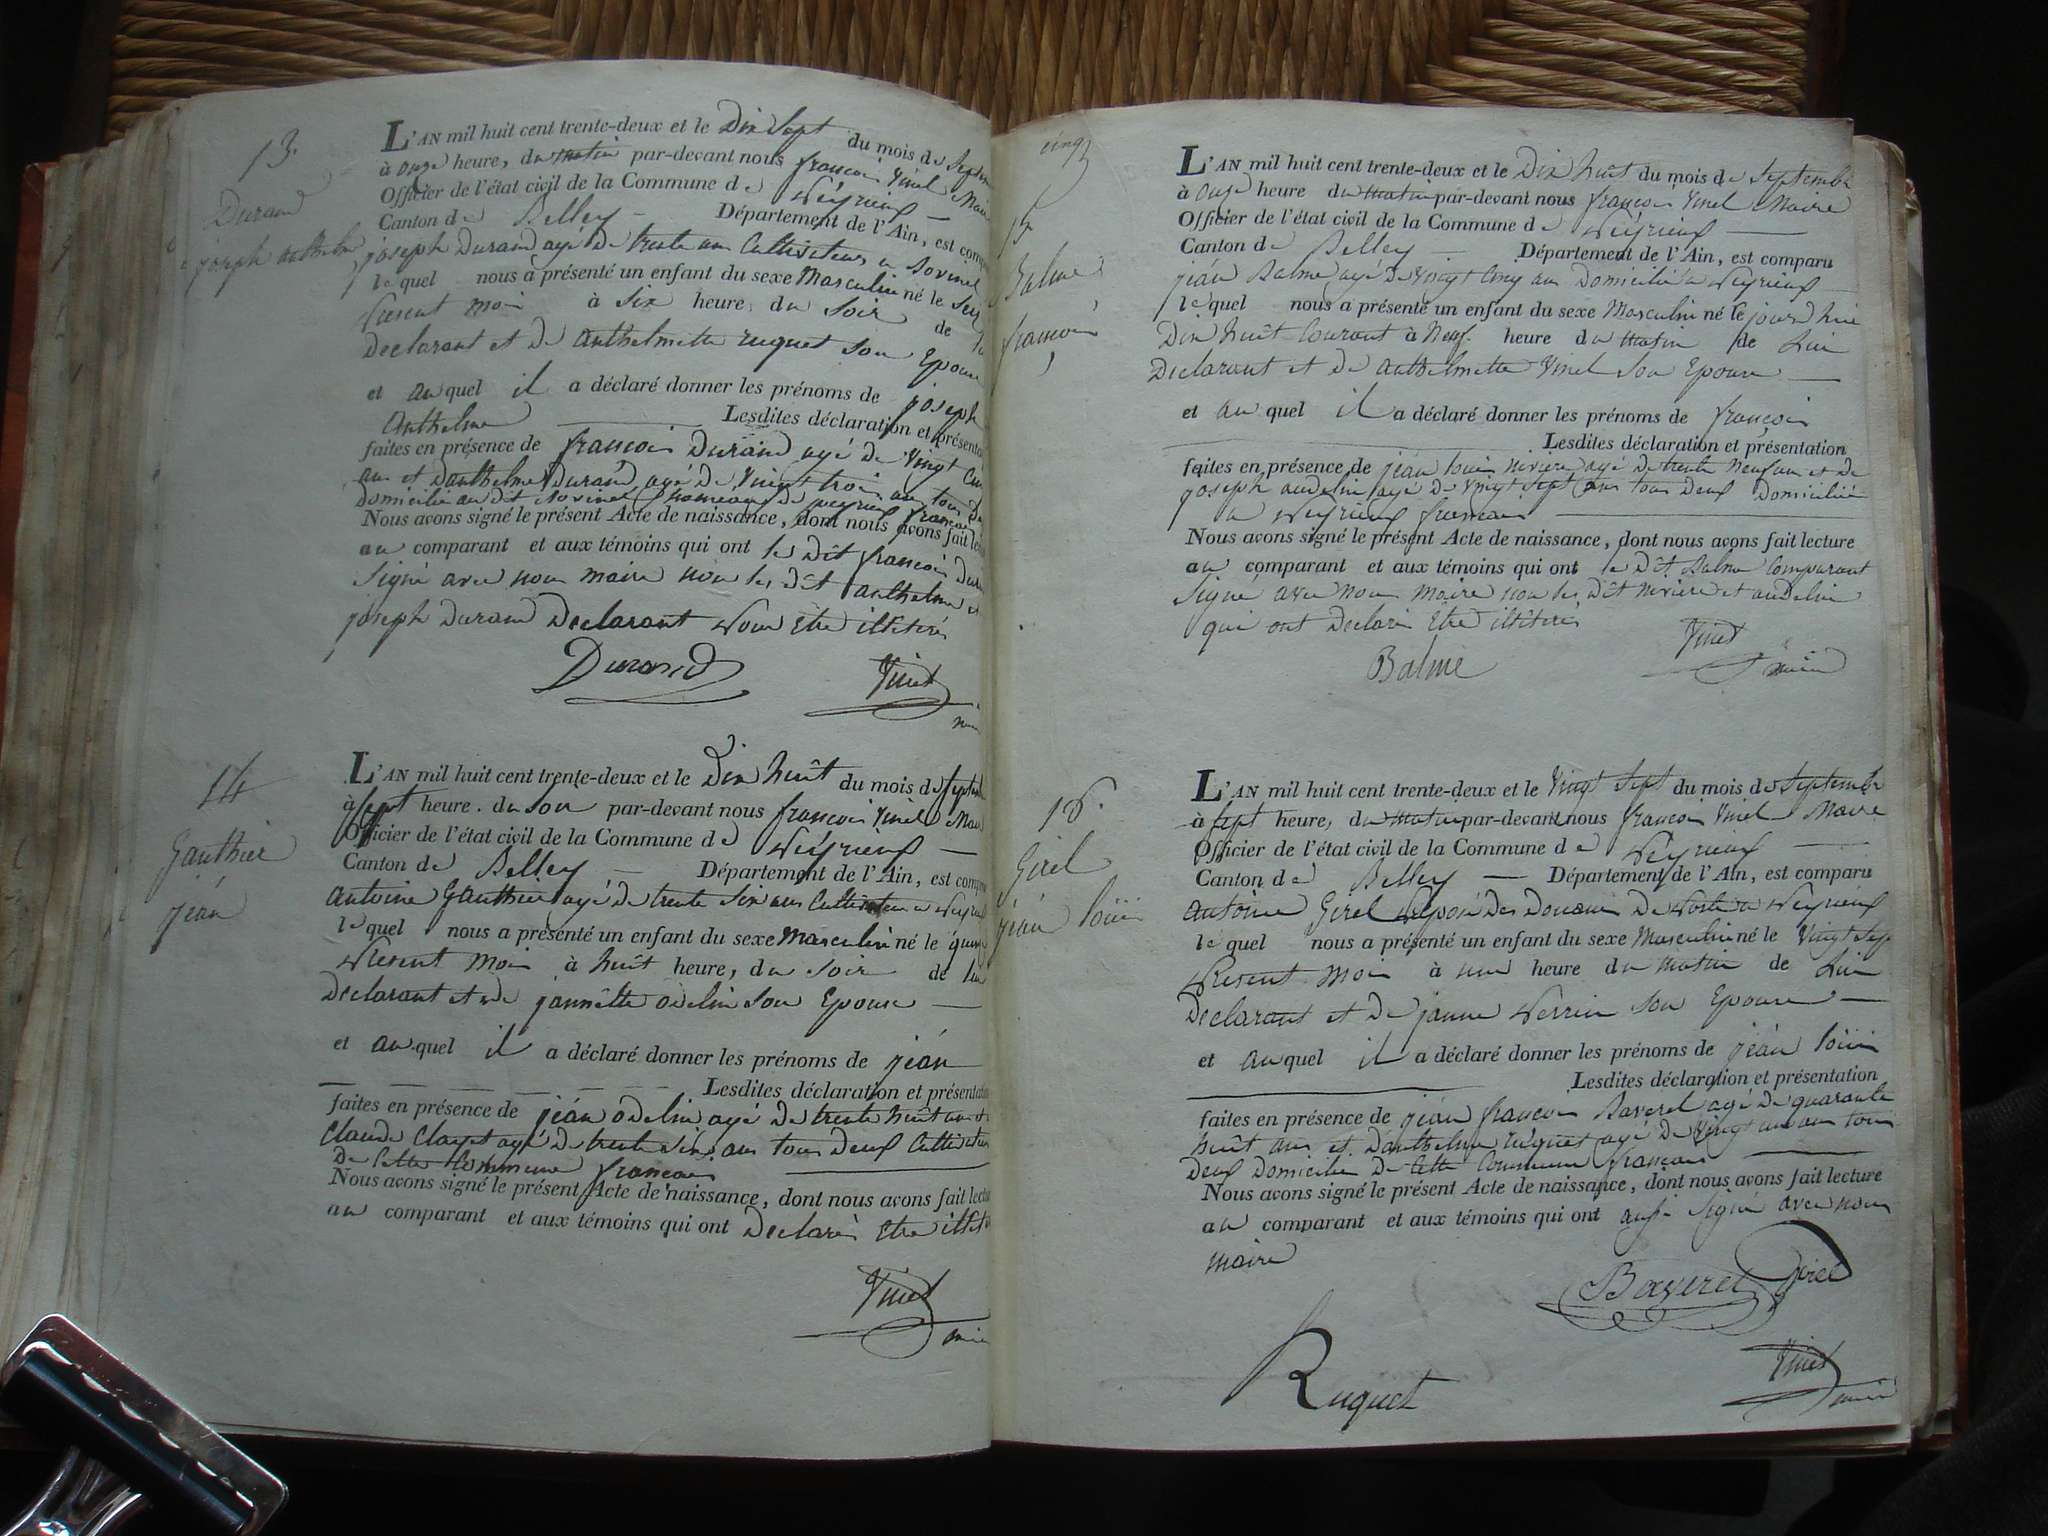 13.
Durand
joseph anthelme
L'AN mil huit cent trente-deux et le Dix Sept du mois de Septem
à onze heure, du matin par-devant nous francois Vinet Mair
Officier de l'état civil de la Commune de Peÿrieux —
Canton de Belley — Département de l'Ain, est comp
joseph Durand agé de trente ans Cultivateur a
le quel nous a présenté un enfant du sexe Masculin né le
present moi à six heure, du soir de
Declarant et de anthelmette ruquet son Epouse
et au quel il a déclaré donner les prénoms de joseph
anthelme Lesdites déclaration et présenta
faites en présence de francois Durand agé de Vingt
ans et danthelme Durand agé de Vingt trois ans tous
domicilié au dit hameau de peyrieux francais
Nous avons signé le présent Acte de naissance, dont nous avons fait lec
au comparant et aux témoins qui ont le Dit francois Dura
Signé avec nous maire non les dit anthelme et
joseph Durand Declarant pour Etre illiteré
Durand Vinet
14
Gauthier
jéan
L'AN mil huit cent trente-deux et le Dix huit du mois de Septem
à sept heure. du soir par-devant nous francois Vinet Mair
Officier de l'état civil de la Commune de Peÿrieux —
Canton de Belley — Département de l'Ain, est comp
antoine Gauthier agé de trente six ans Cultivateur a Peyrieux
le quel nous a présenté un enfant du sexe Masculin né le
present moi à huit heure, du soir de lui
Declarant et de jannette odelin son Epouse —
et au quel il a déclaré donner les prénoms de jéan
Lesdites déclaration et présentatio
faites en présence de jéan odelin agé de trente huit ans et
Claude Clayet agé de trente six ans tous deux Cultivateur
De Cette Commune francais
Nous avons signé le présent Acte de naissance, dont nous avons fait lectu
au comparant et aux témoins qui ont Declaré Etre
Vinet
cinq
15
Balme
francois
L'AN mil huit cent trente-deux et le Dix huit du mois de Septembre
à onze heure du matin par-devant nous francois Vinet Maire
Officier de l'état civil de la Commune de Peÿrieux —
Canton de Belley — Département de l'Ain, est comparu
jéan Balme agé de Vingt Cinq ans Domicilié a Peÿrieux
le quel nous a présenté un enfant du sexe Masculin né le jourd hui
Dix huit Courant à Neuf heure du matin de Lui
Declarant et de anthelmette Vinet son Epouse —
et au quel il a déclaré donner les prénoms de francois
Lesdites déclaration et présentation
faites en présence de jéan louis riviere agé de trente Neuf ans et de
joseph audelin agé de Vingt sept ans tous Deux Domicilié
a Peÿrieux francais
Nous avons signé le présent Acte de naissance, dont nous avons fait lecture
au comparant et aux témoins qui ont le Dit Balme Comparant
Signé avec nous maire non les dit riviere et audelin
qui ont Declaré Etre illiteré
Balme Vinet maire
16.
Girel
jéan louis
L'AN mil huit cent trente-deux et le Vingt Sept du mois de Septembre
à sept heure, du matin par-devant nous francois Vinet Maire
Officier de l'état civil de la Commune de Peÿrieux —
Canton de Belley — Département de l'Ain, est comparu
antoine Girel préposé Des Douanes De Poste a Peyrieux
le quel nous a présenté un enfant du sexe Masculin né le Vingt Sept
present moi à une heure du matin de Lui
Declarant et de janne perrin son Epouse —
et au quel il a déclaré donner les prénoms de jéan louis
Lesdites déclaration et présentation
faites en présence de jéan francois Baverel agé de quarante
huit ans et danthelme ruquet agé de Vingt un ans tous
Deux Domicilié De Cette Commune francais
Nous avons signé le présent Acte de naissance, dont nous avons fait lecture
au comparant et aux témoins qui ont aussi Signé avec nous
maire
Baverel Girel
Ruquet Vinet maire